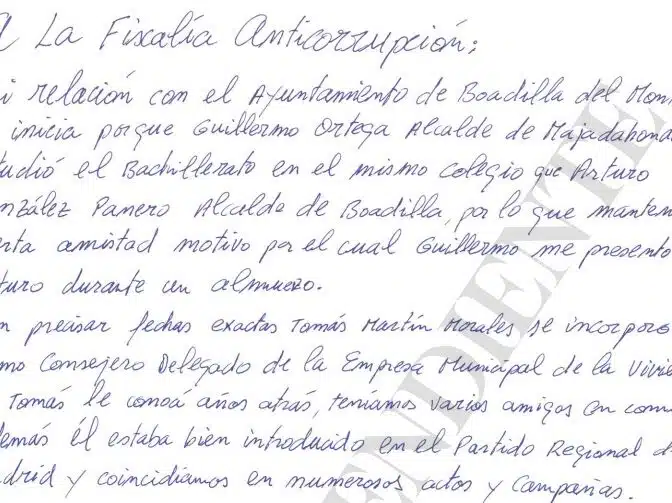 A La Fiscalía Anticorrupción:
i relación con el Ayuntamiento de Boadilla del Mon
inicia porque Guillermo Ortega Alcalde de Majadahond
tudió el Bachillerato en el mismo colegio que Arturo
nzález Panero Alcalde de Boadilla, por lo que manten
rta amistad motivo por el cual Guillermo me presento
turo durante un almuerzo.
n precisar fechas exactas Tomás Martín Morales se incorporo
mo Consejero Delegado de la Empresa Municipal de la Vivie
Tomás le conocí años atrás, teniamos varios amigos en com
demás él estaba bien introducido en el Partido Regional d
drid y coincidiamos en numerosos actos y campañas.
ENDIENTE